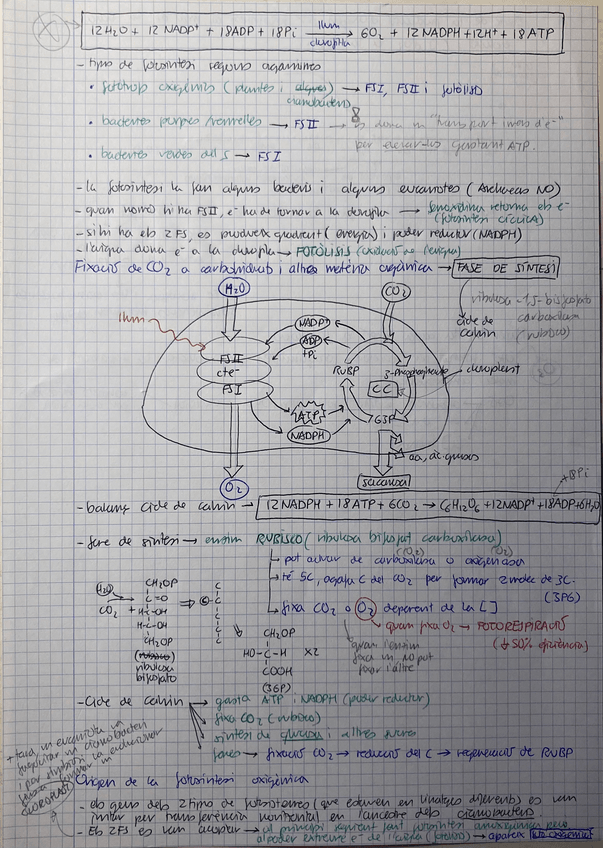 12H₂O + 12 NADP⁺ + 18ADP + 18Pi llum clorofil·la → 6O₂ + 12NADPH + 12H⁺ + 18ATP
- tipus de fotosíntesi segons organismes
• fotòtrofs oxigènics (plantes i algues) → FSI, FSII i fotòlisi
cianobacteris
• bacteries porpres / vermelles → FSII → es dona un "transport invers d'e⁻"
per gastant ATP.
• bacteries verdes del S → FSI
- la fotosíntesi la fan alguns bacteris i alguns eucariotes (Archaeas NO)
- quan només hi ha FSII, e⁻ ha de tornar a la clorofil·la → ferredoxina retorna els e⁻
(fotosíntesi cíclica)
- si hi ha els 2 FS, es produeix gradient (energia) i poder reductor (NADPH)
- l'aigua dona e⁻ a la clorofil·la → FOTÒLISIS (oxidació de l'aigua)
Fixació de CO₂ a carbohidrats i altra matèria orgànica → FASE DE SÍNTESI
H₂O
CO₂
ribulosa-1,5-bisfosfato
carboxilasa
(rubisco)
cicle de
calvin
llum
NADP⁺
ADP
+Pi
FSII
cte⁻
FSI
RuBP
3-Phosphoglycerate
cloroplast
CC
ATP
G3P
NADPH
aa, àc. grassos
O₂
sacarosa
+18Pi
- balanç cicle de calvin → 12NADPH + 18ATP + 6CO₂ → C₆H₁₂O₆ + 12NADP⁺ + 18ADP + 6H₂O
- fase de síntesi → enzim RUBISCO (ribulosa bifosfat carboxilasa)
(CO₂) (O₂)
pot actuar de carboxilasa o oxigenasa
té 5C, agafa C del CO₂ per formar 2 molec de 3C.
(3PG)
fixa CO₂ o O₂ depenent de la [ ]
quan fixa O₂ → FOTORESPIRACIÓ
(↓ 50% eficiència)
quan l'enzim
fixa un, no pot
fixar l'altre
H₂O
CO₂ +
CH₂OP
C=O
H-C-OH
H-C-OH
CH₂OP
(rubisco)
ribulosa
bifosfato
⇒
C
C
C
C
C
C
CH₂OP
HO-C-H x2
COOH
(3GP)
- Cicle de calvin → gasta ATP i NADPH (poder reductor)
fixa CO₂ (rubisco)
síntesi de glucosa i altres sucres
fases → fixació CO₂ → reducció del C → regeneració de RuBP
+ tard, un eucariota va
fagocitar un cianobacteri
i per
Origen de la fotosíntesi oxigènica
- els gens dels 2 tipus de fotosistemes (que estaven en llinatges diferents) es van
juntar per transferència horitzontal en l'ancestre dels cianobacteris.
- Els 2FS es van acoplar → al principi fent fotosíntesi anoxigènica però
al poder extreure e⁻ de l'aigua (fotòlisi) → apareix